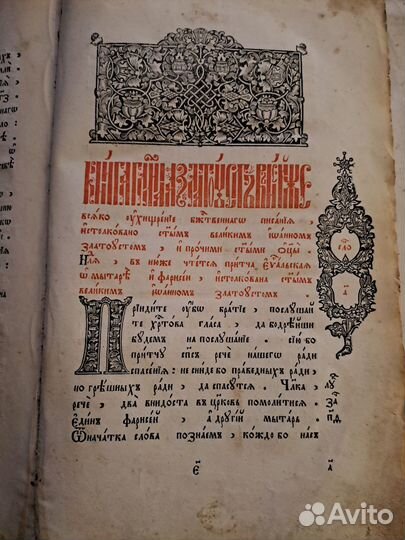 КНИГА ГЛАГОЛЕМАЯ ЗЛАТОУСТЪ В НЕЙЖЕ
всѧко ᲂу҆хищре́нїе бжⷭ҇твеннагѡ писа́нїѧ,
и҆столкова́но ст҃ы́мъ вели́кимъ і҆ѡа́нномъ
златоу́стомъ, и҆ про́чими ст҃ы́ми ѻ҆ц҃ы̀.
Нлⷧ҇ѧ, в҃ ни́же чте́тсѧ при́тча є҆ѵⷢ҇льскаѧ
ѡ҆ мытарѣ̀ и҆ фарисе́и, и҆столко́вана ст҃ы́мъ
вели́кимъ і҆ѡа́нномъ златоу́стомъ.
Прїиди́те ᲂу҆́бѡ бра́тїе, послу́шай
те хрⷭ҇то́ва гла́са, да бо́дрѣйши
бу́демъ на послуша́нїе. сїю́ бо
при́тчу сп҃съ речѐ на́шегѡ ра́ди
спасе́нїѧ: не сни́де бо пра́ведныхъ ра́ди,
но грѣ́шныхъ ра́ди, да спасу́тсѧ. Чл҃ка,
речѐ, два̀ внидо́ста въ цр҃ковь помоли́тисѧ.
є҆ди́нъ фарисе́й, а҆ дрꙋгі́й мыта́рь.
Ѿнача́тка сло́ва позна́емъ, ко́ждо бо на́съ
сло́
а҃
лꙋⷦ҇
зⷱ҇а
п҃ѳ
є҃
а҃
Avito